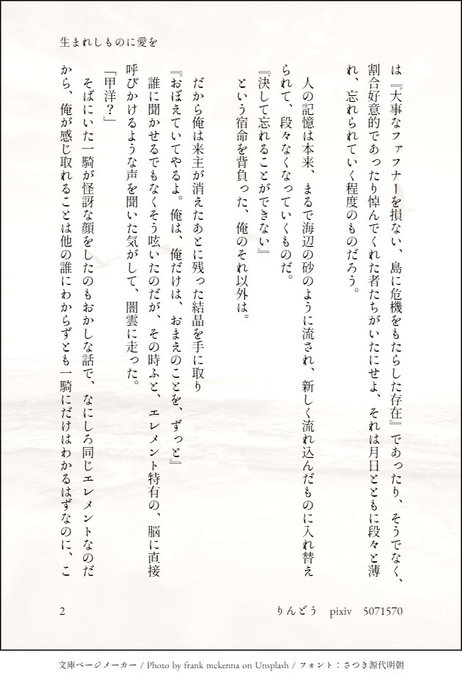 生まれしものに愛を
は『大事なファフナーを損ない、島に危機をもたらした存在』であったり、そうでなく、
割合好意的であったり悼んでくれた者たちがいたにせよ、それは月日とともに段々と薄
れ、忘れられていく程度のものだろう。
人の記憶は本来、まるで海辺の砂のように流され、新しく流れ込んだものに入れ替え
られて、段々なくなっていくものだ。
『決して忘れることができない』
という宿命を背負った、俺のそれ以外は。
だから俺は来主が消えたあとに残った結晶を手に取り
『おぼえていてやるよ。俺は、俺だけは、おまえのことを、ずっと』
誰に聞かせるでもなくそう呟いたのだが、その時ふと、エレメント特有の、脳に直接
呼びかけるような声を聞いた気がして、闇雲に走った。
「甲洋？」
そばにいた一騎が怪訝な顔をしたのもおかしな話で、なにしろ同じエレメントなのだ
から、俺が感じ取れることは他の誰にわからずとも一騎にだけはわかるはずなのに、こ
2
りんどう pixiv 5071570
文庫ページメーカー / Photo by frank mckenna on Unsplash / フォント：さつき源代明朝